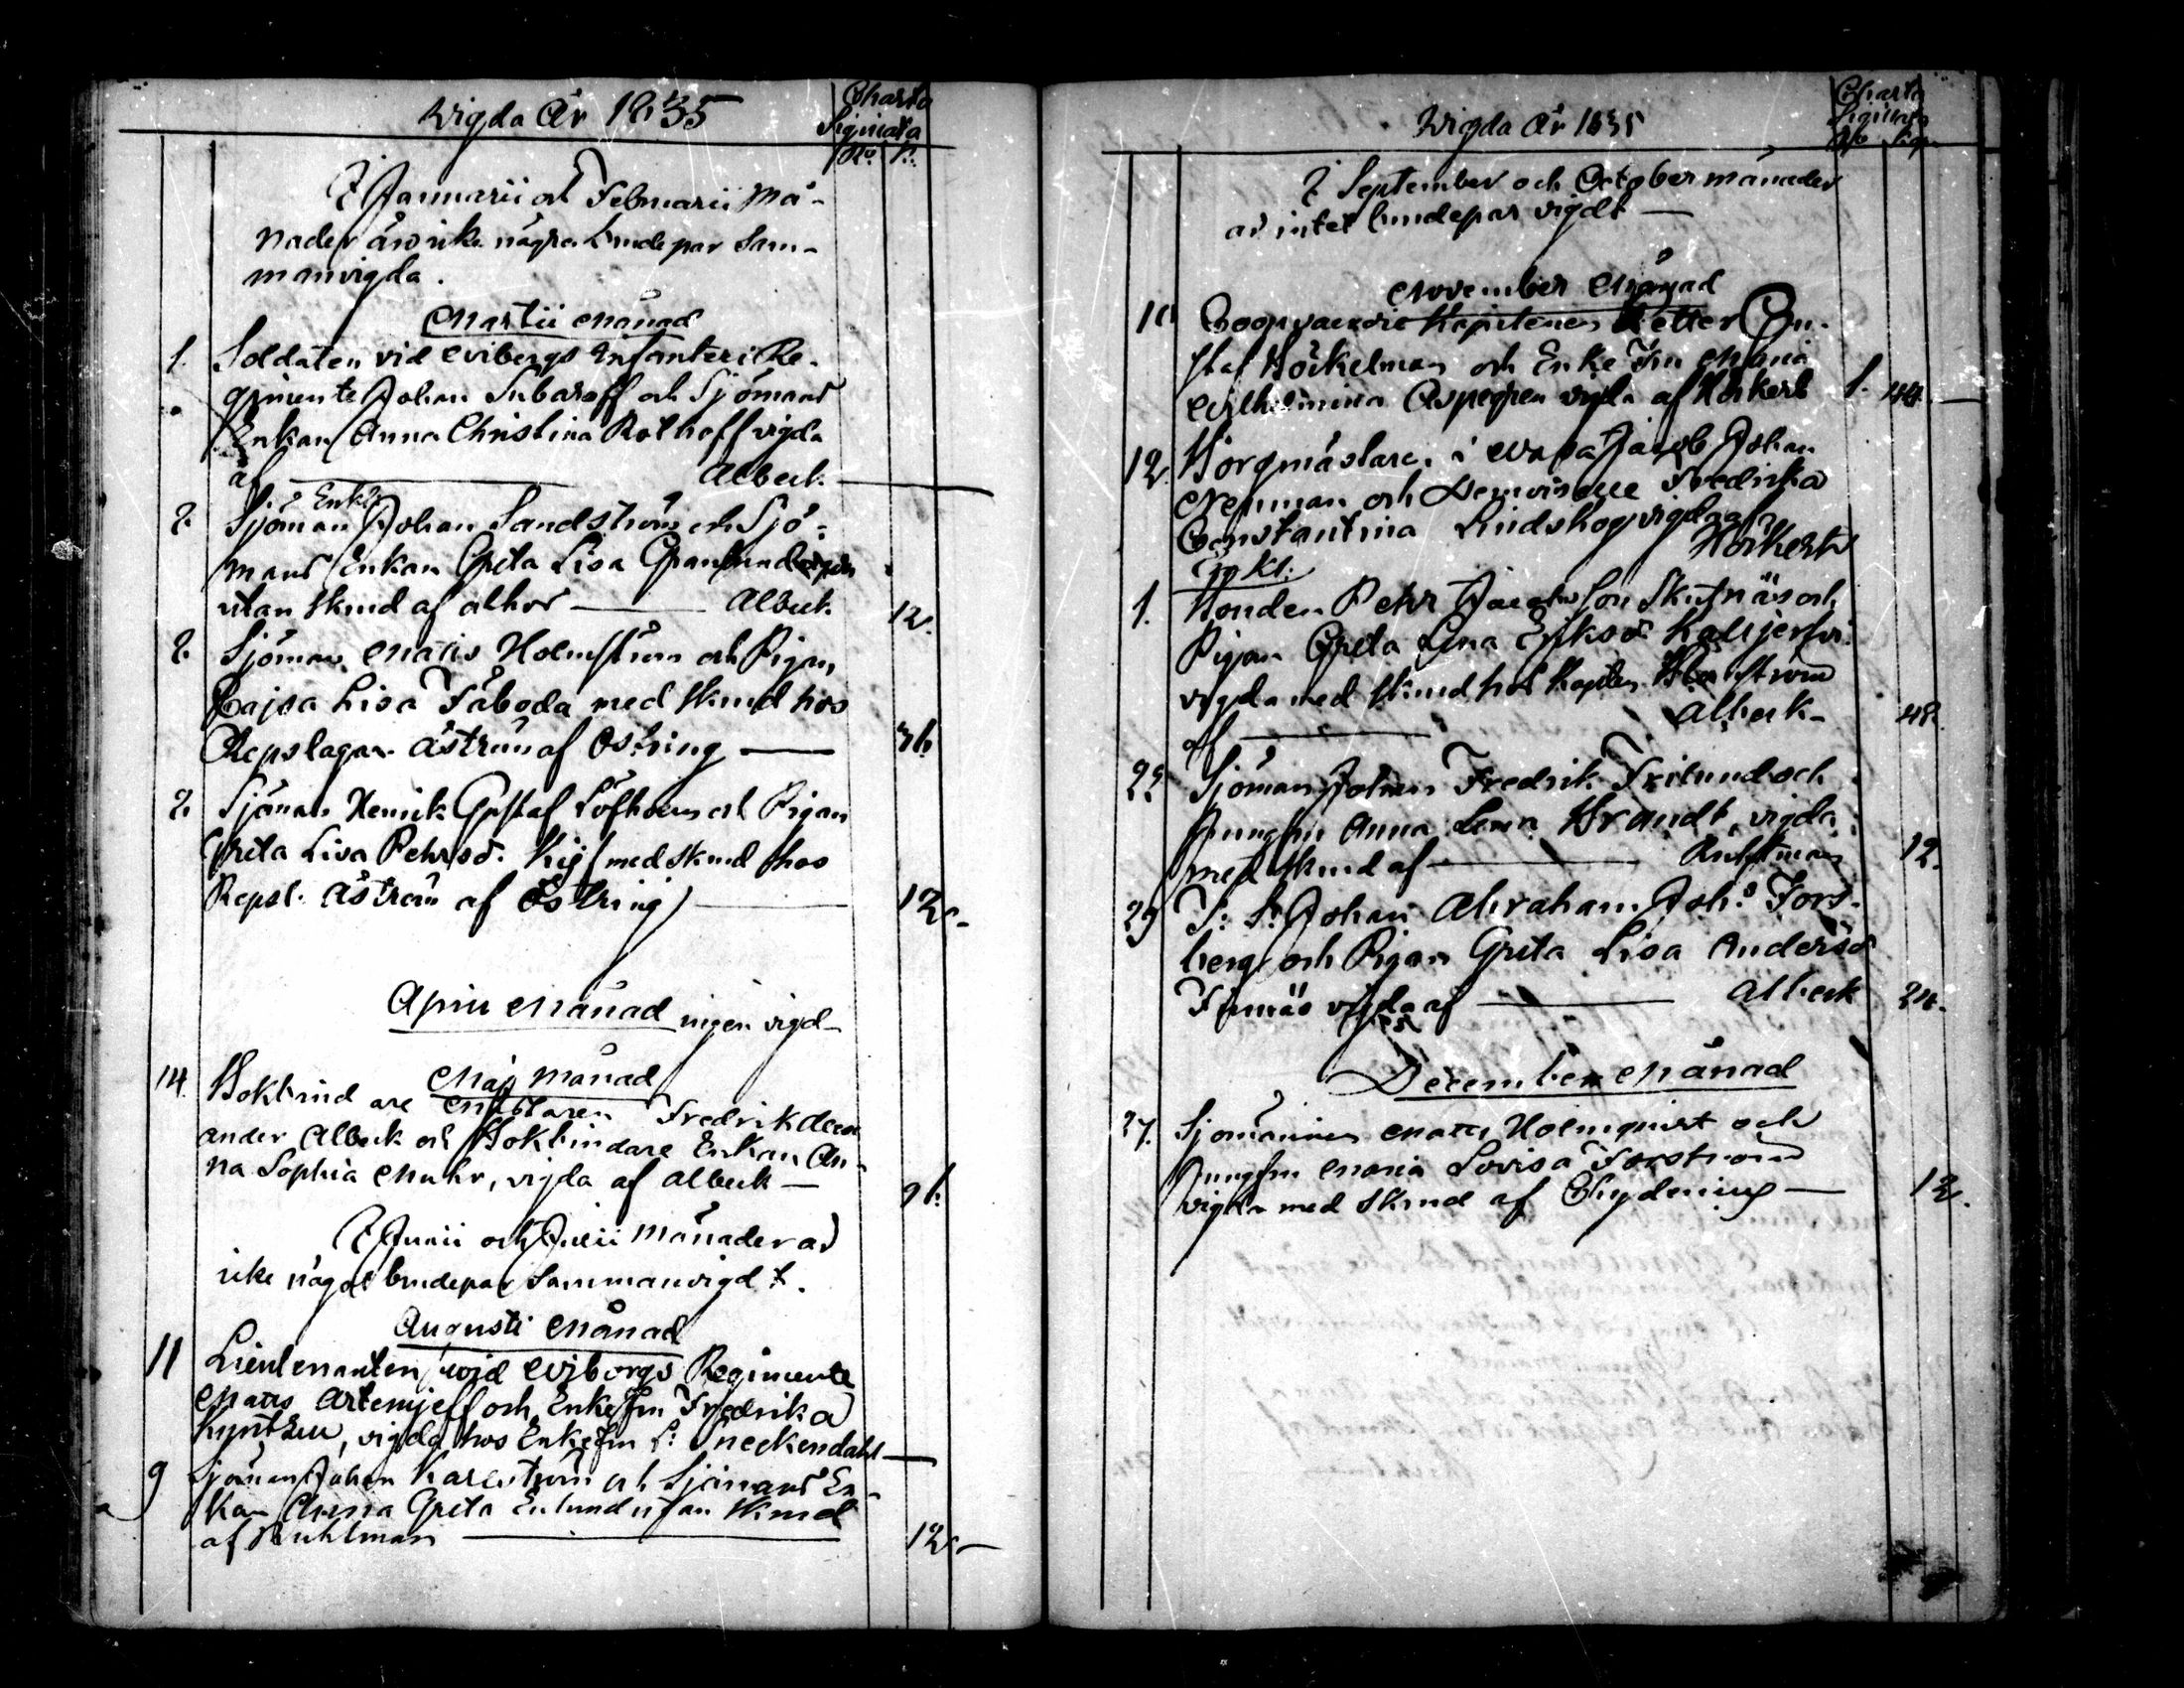 Wigda År 1835
Charta
Sigillata
No. K.
I Januarii och Februarii Må-
nader äro icke några brudepar Sam-
manvigda.
Martii Månad
1. Soldaten vid Wiborgs Infanteri Re-
gemente Johan Subaroff och Sjömans
Enkan Anna Christina Rothoff vigda
af Albeck
Enkl.
2. Sjöman Johan Sandström och Sjö-
mans Enkan Greta Lisa Granlund
utan skrud af Albeck 12.
2. Sjöman Matts Holmström och Pigan
Cajsa Lisa Fäboda med skrud hos
Repslagar Åström af Östring 36.
2. Sjöman Henrik Gustaf Löfholm och Pigan
Greta Lisa Pehrsd. med skrud hos
Repsl. Åström af Östring 12.
April Månad ingen vigd
Maj Månad
14. Bokbindare Mästaren Fredrik
ander Albeck och Bokbindare Enkan An-
na Sophia Muhr, vigda af Albeck 96.
I Junii och Julii Månader är
icke något brudepar Sammanvigdt.
Augusti Månad
11 Lieutenanten wid Wiborgs Regimente
Matts Artemjeff och Enkefru Fredrika
vigda hos Enkefru L: Sneckendahl
9 Sjöman Johan Karlström och Sjömans En-
kan Anna Greta Enlund utan skrud
af Ruhlman 12
Wigda År 1835
Charta
Sigillata
No
I September och October månader
är intet brudepar vigdt
November Månad
10 Coopvaerdie Kapitenen Petter Gu-
staf Böckelman och Enke Fru Maria
Wilhelmina Aspegren vigda af Hörkert 1. 44
12. Borgmästare i Wasa Jacob Johan
Nessman och Demviselle Fredrika
Constantina Lindskog vigda af
Hörkert
1. Bonden Pehr Jacobsson Skutnäs och
Pigan Greta Lena Eriksd. Kalljerfvi
vigda med skrud hos Kapten
af Albeck 48.
22 Sjöman Johan Fredrik Frilund och
Jungfru Anna Lena Brandt, vigda
med skrud af Ruhlman 12.
29 S: S: Johan Abraham Joh: Fors-
berg och Pigan Greta Lisa Andersd
Finnäs vigda af Albeck 24.
December Månad
27. Sjömannen Matts Holmqvist och
Jungfru Maria Lovisa Forsström
vigda med skrud af Chydenius 12.